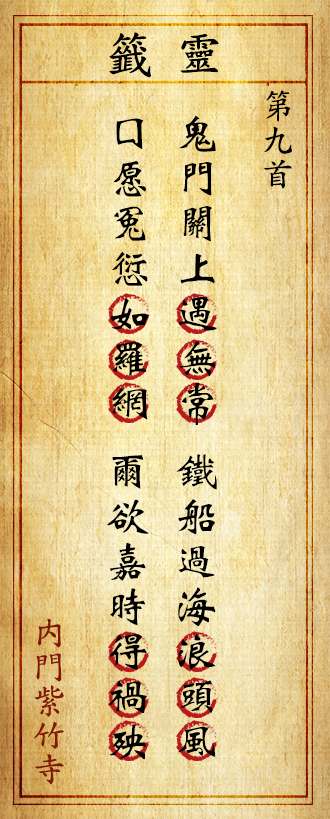 靈籤
第九首
鬼門關上遇無常 鐵船過海浪頭風
口愿冤愆如羅網 爾欲嘉時得禍殃
内門紫竹寺